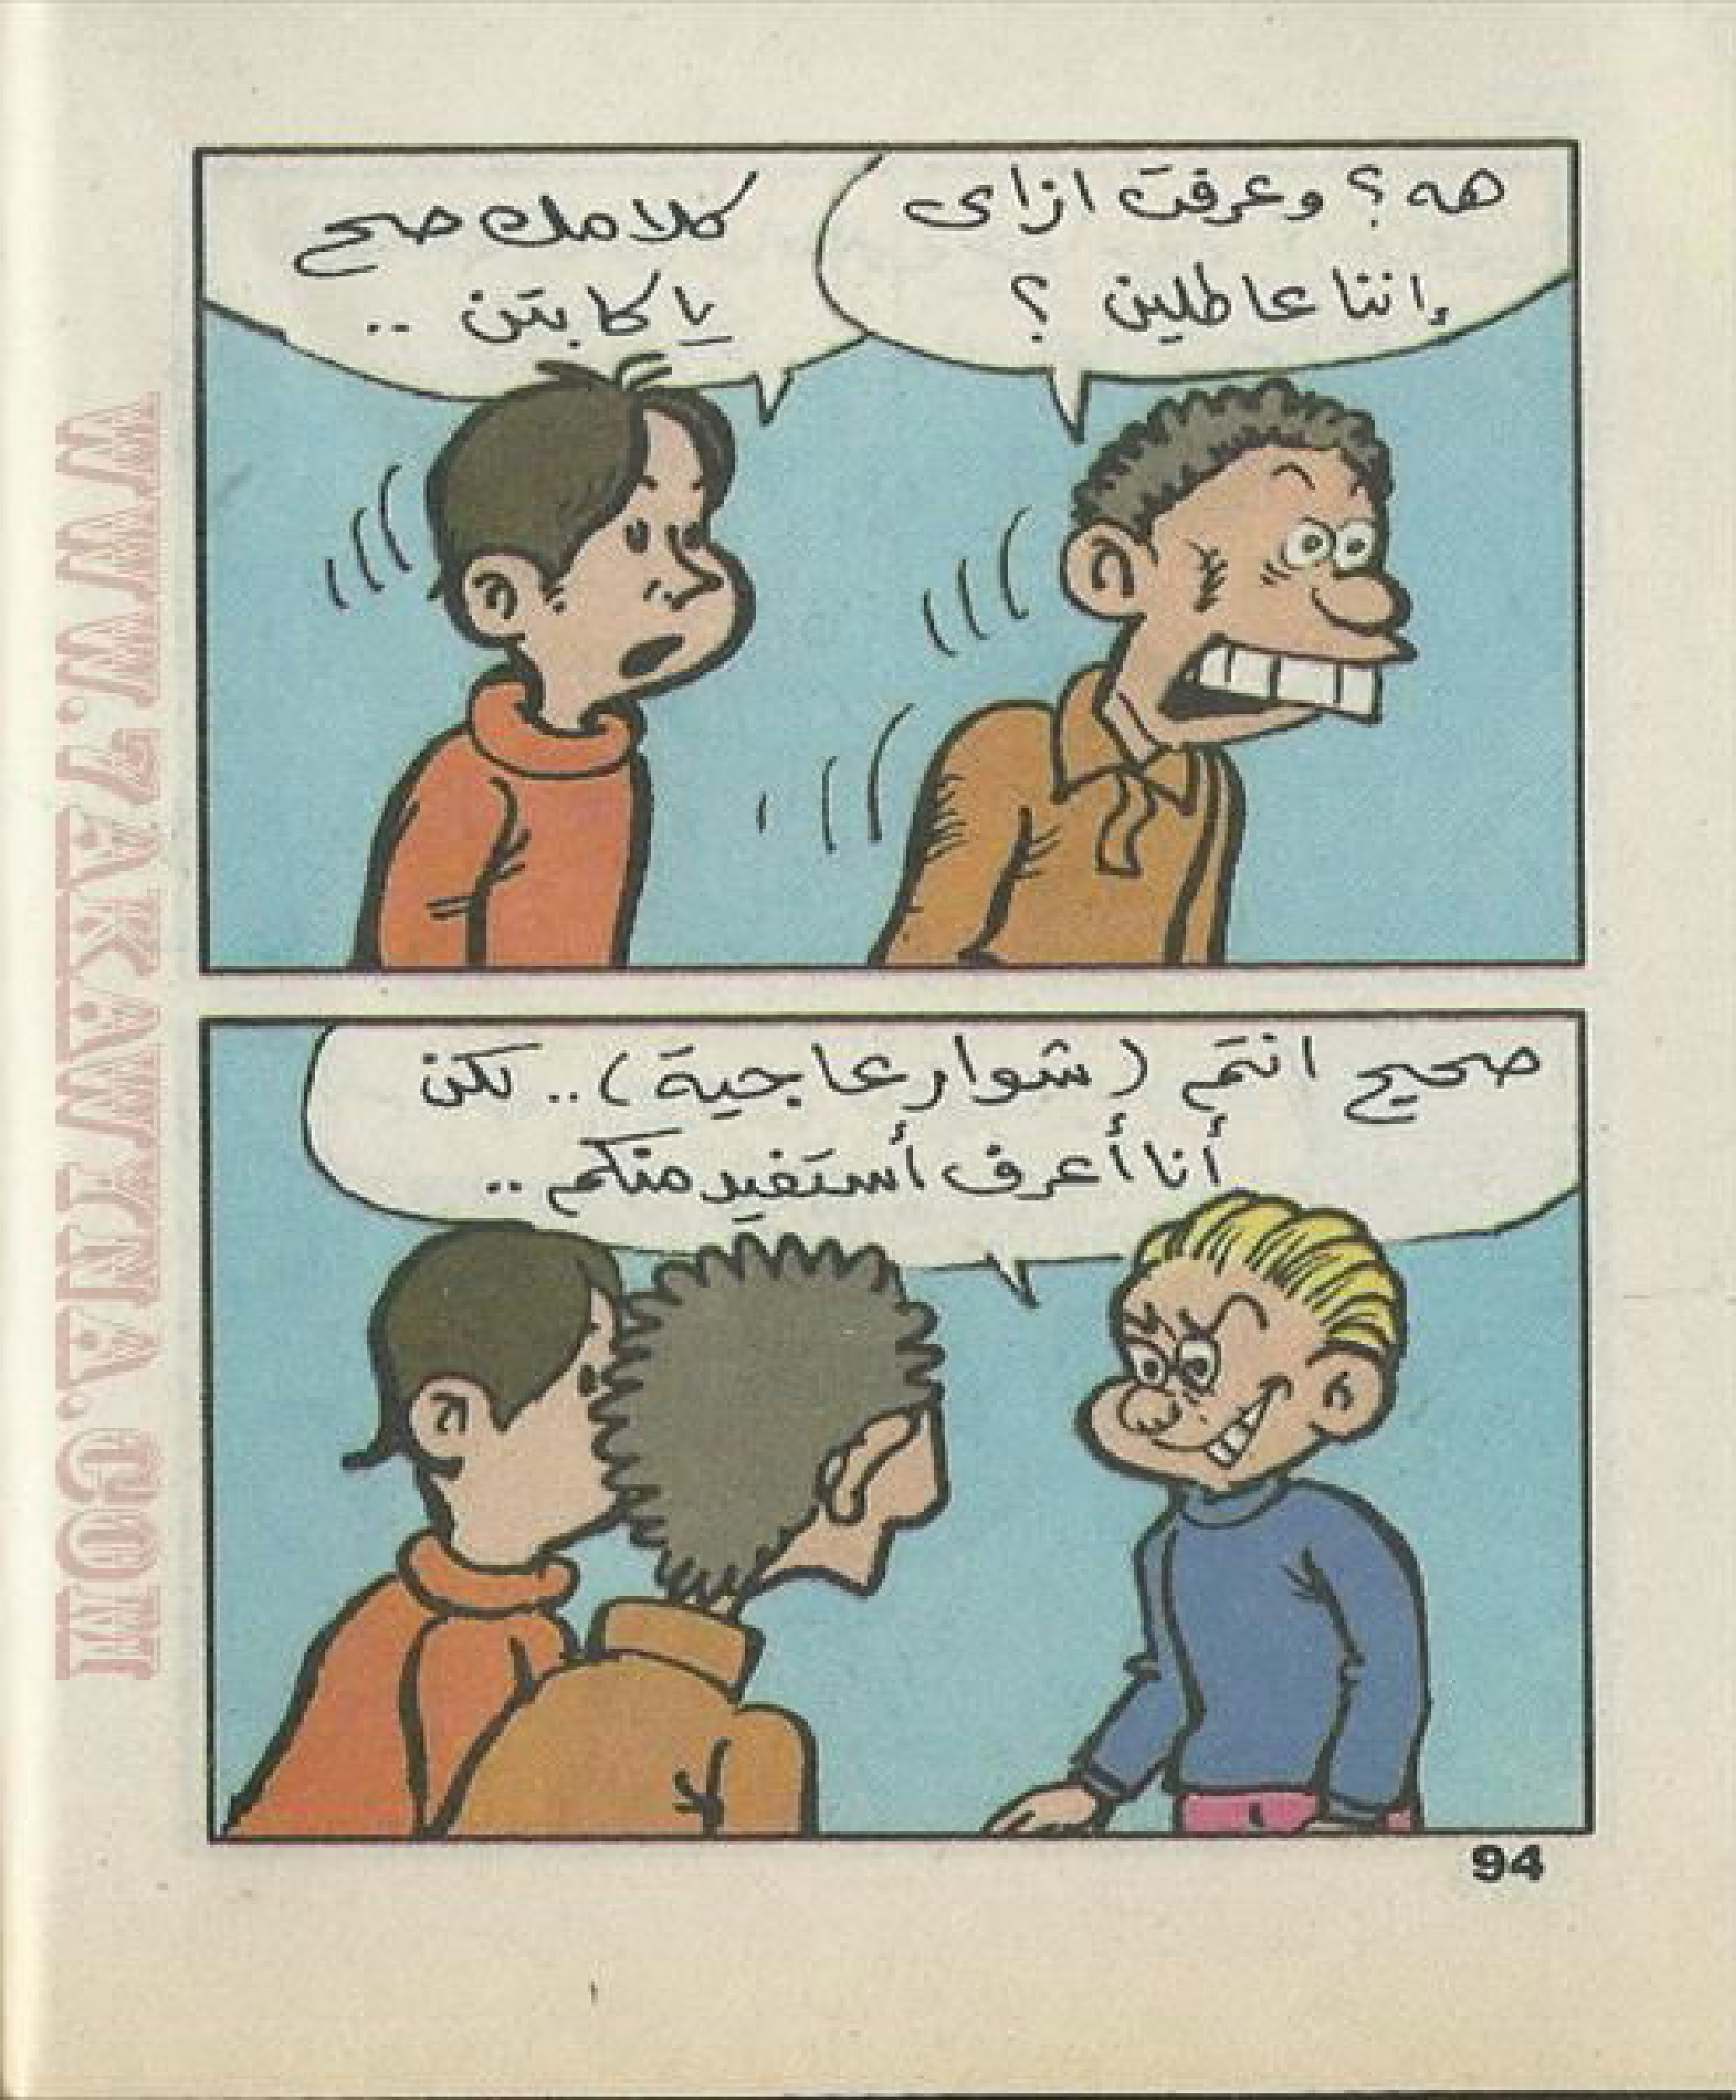 هه؟ وعرفت ازاى
إننا عاطلين ؟
كلامك صح
يا كابتن ..
صحيح انتم (شوارعاجية).. لكن
أنا أعرف أستفيد منكم ..
94
WWW.7AKAWYNA.COM